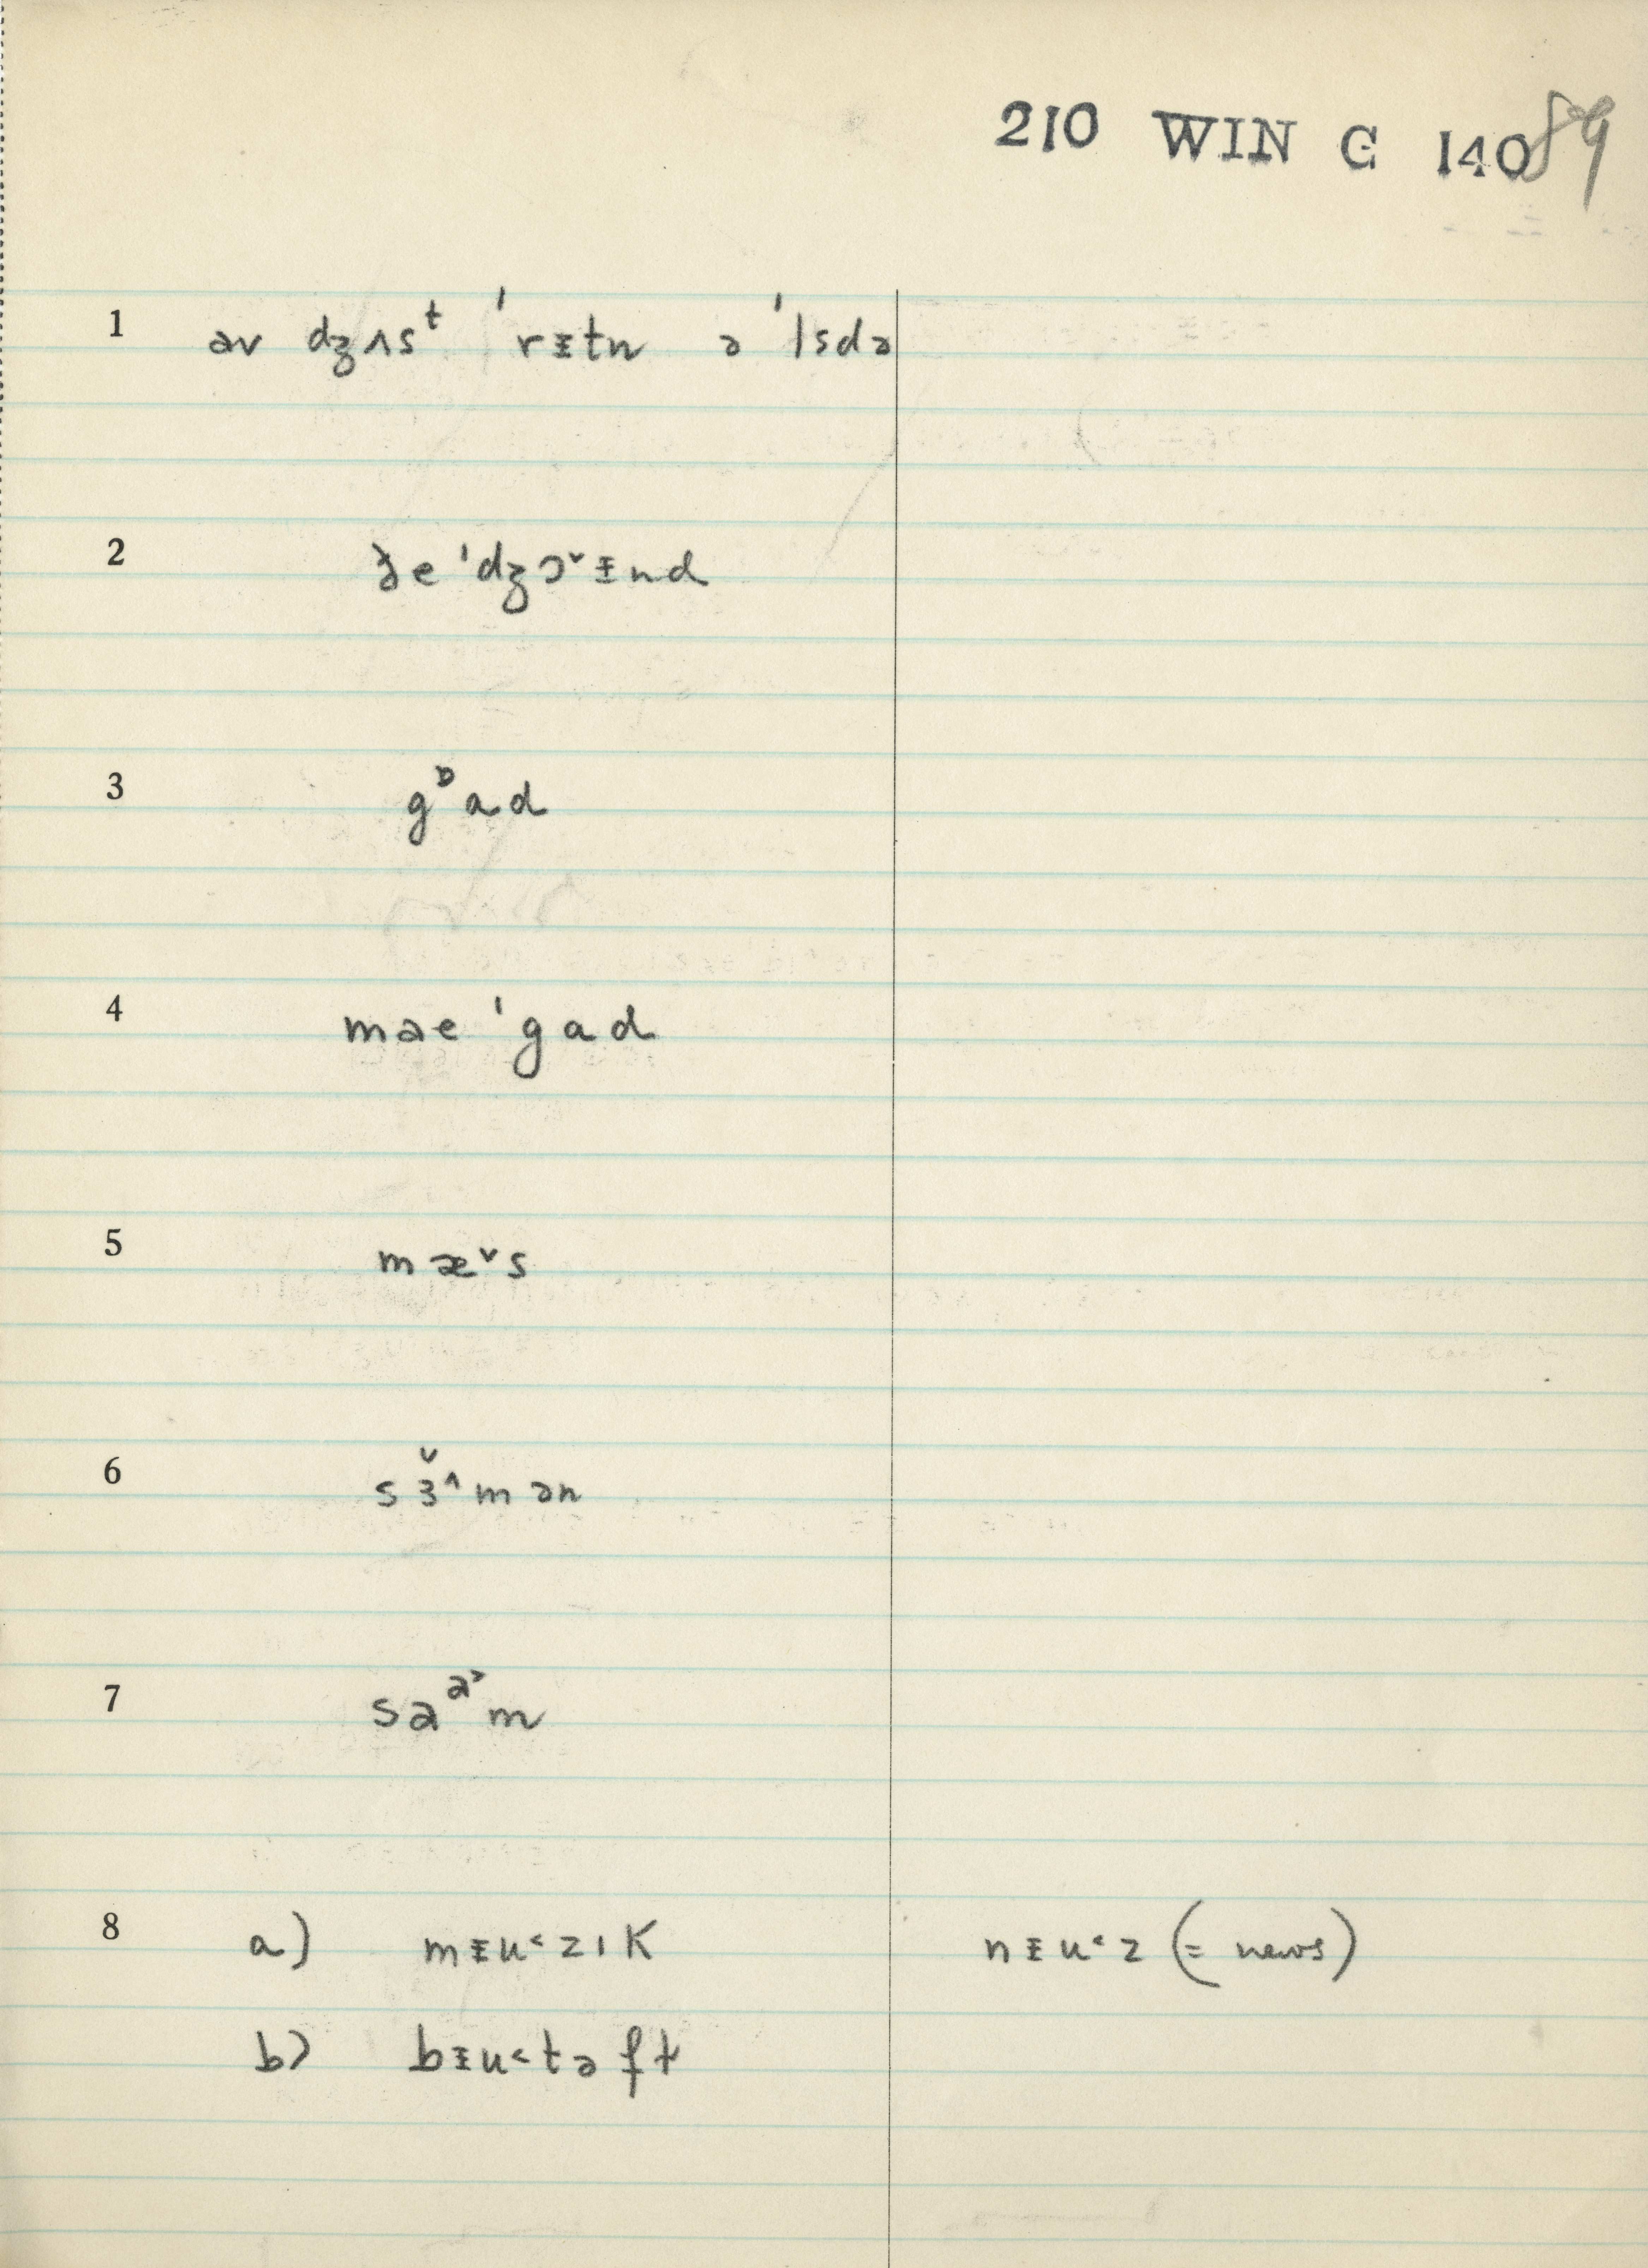 210 WIN G 140 89
1 əv dʒʌsᵗ ˈrɪtn ə ˈlsdə
2 ðe ˈdʒɔ˅ɪnd
3 gᶛad
4 mae ˈgad
5 mæ˅s
6 sɜ̌^mən
7 saᵃ˃m
8 a) mɪu˂zık nɪu˂z (= news)
b) bɪu˂təft